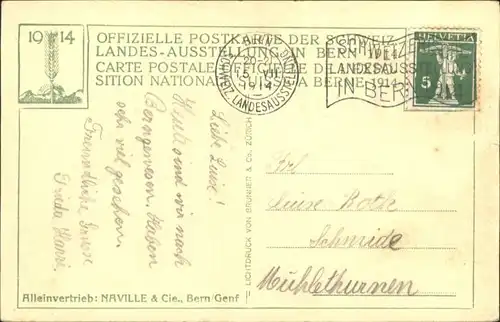 1914
OFFIZIELLE POSTKARTE DER SCHWEIZ.
LANDES-AUSSTELLUNG IN BERN 1914
CARTE POSTALE OFFICIELLE DE L'EXPO
SITION NATIONALE SUISSE A BERNE 1914
BERN
SCHWEIZ. LANDESAUSSTELLUNG
1914
SCHWEIZ
LANDESAUSSTELLUNG
IN BERN
HELVETIA
5
Liebe Luise!
Heute sind wir nach
Bern gewesen. Haben
sehr viel gesehen.
Freundliche Grüsse
Frieda Hanni
LICHTDRUCK VON BRUNNER & Cie., ZÜRICH
Frl
Luise Roth
Schmide
Mühlethurnen
Alleinvertrieb: NAVILLE & Cie., Bern/Genf